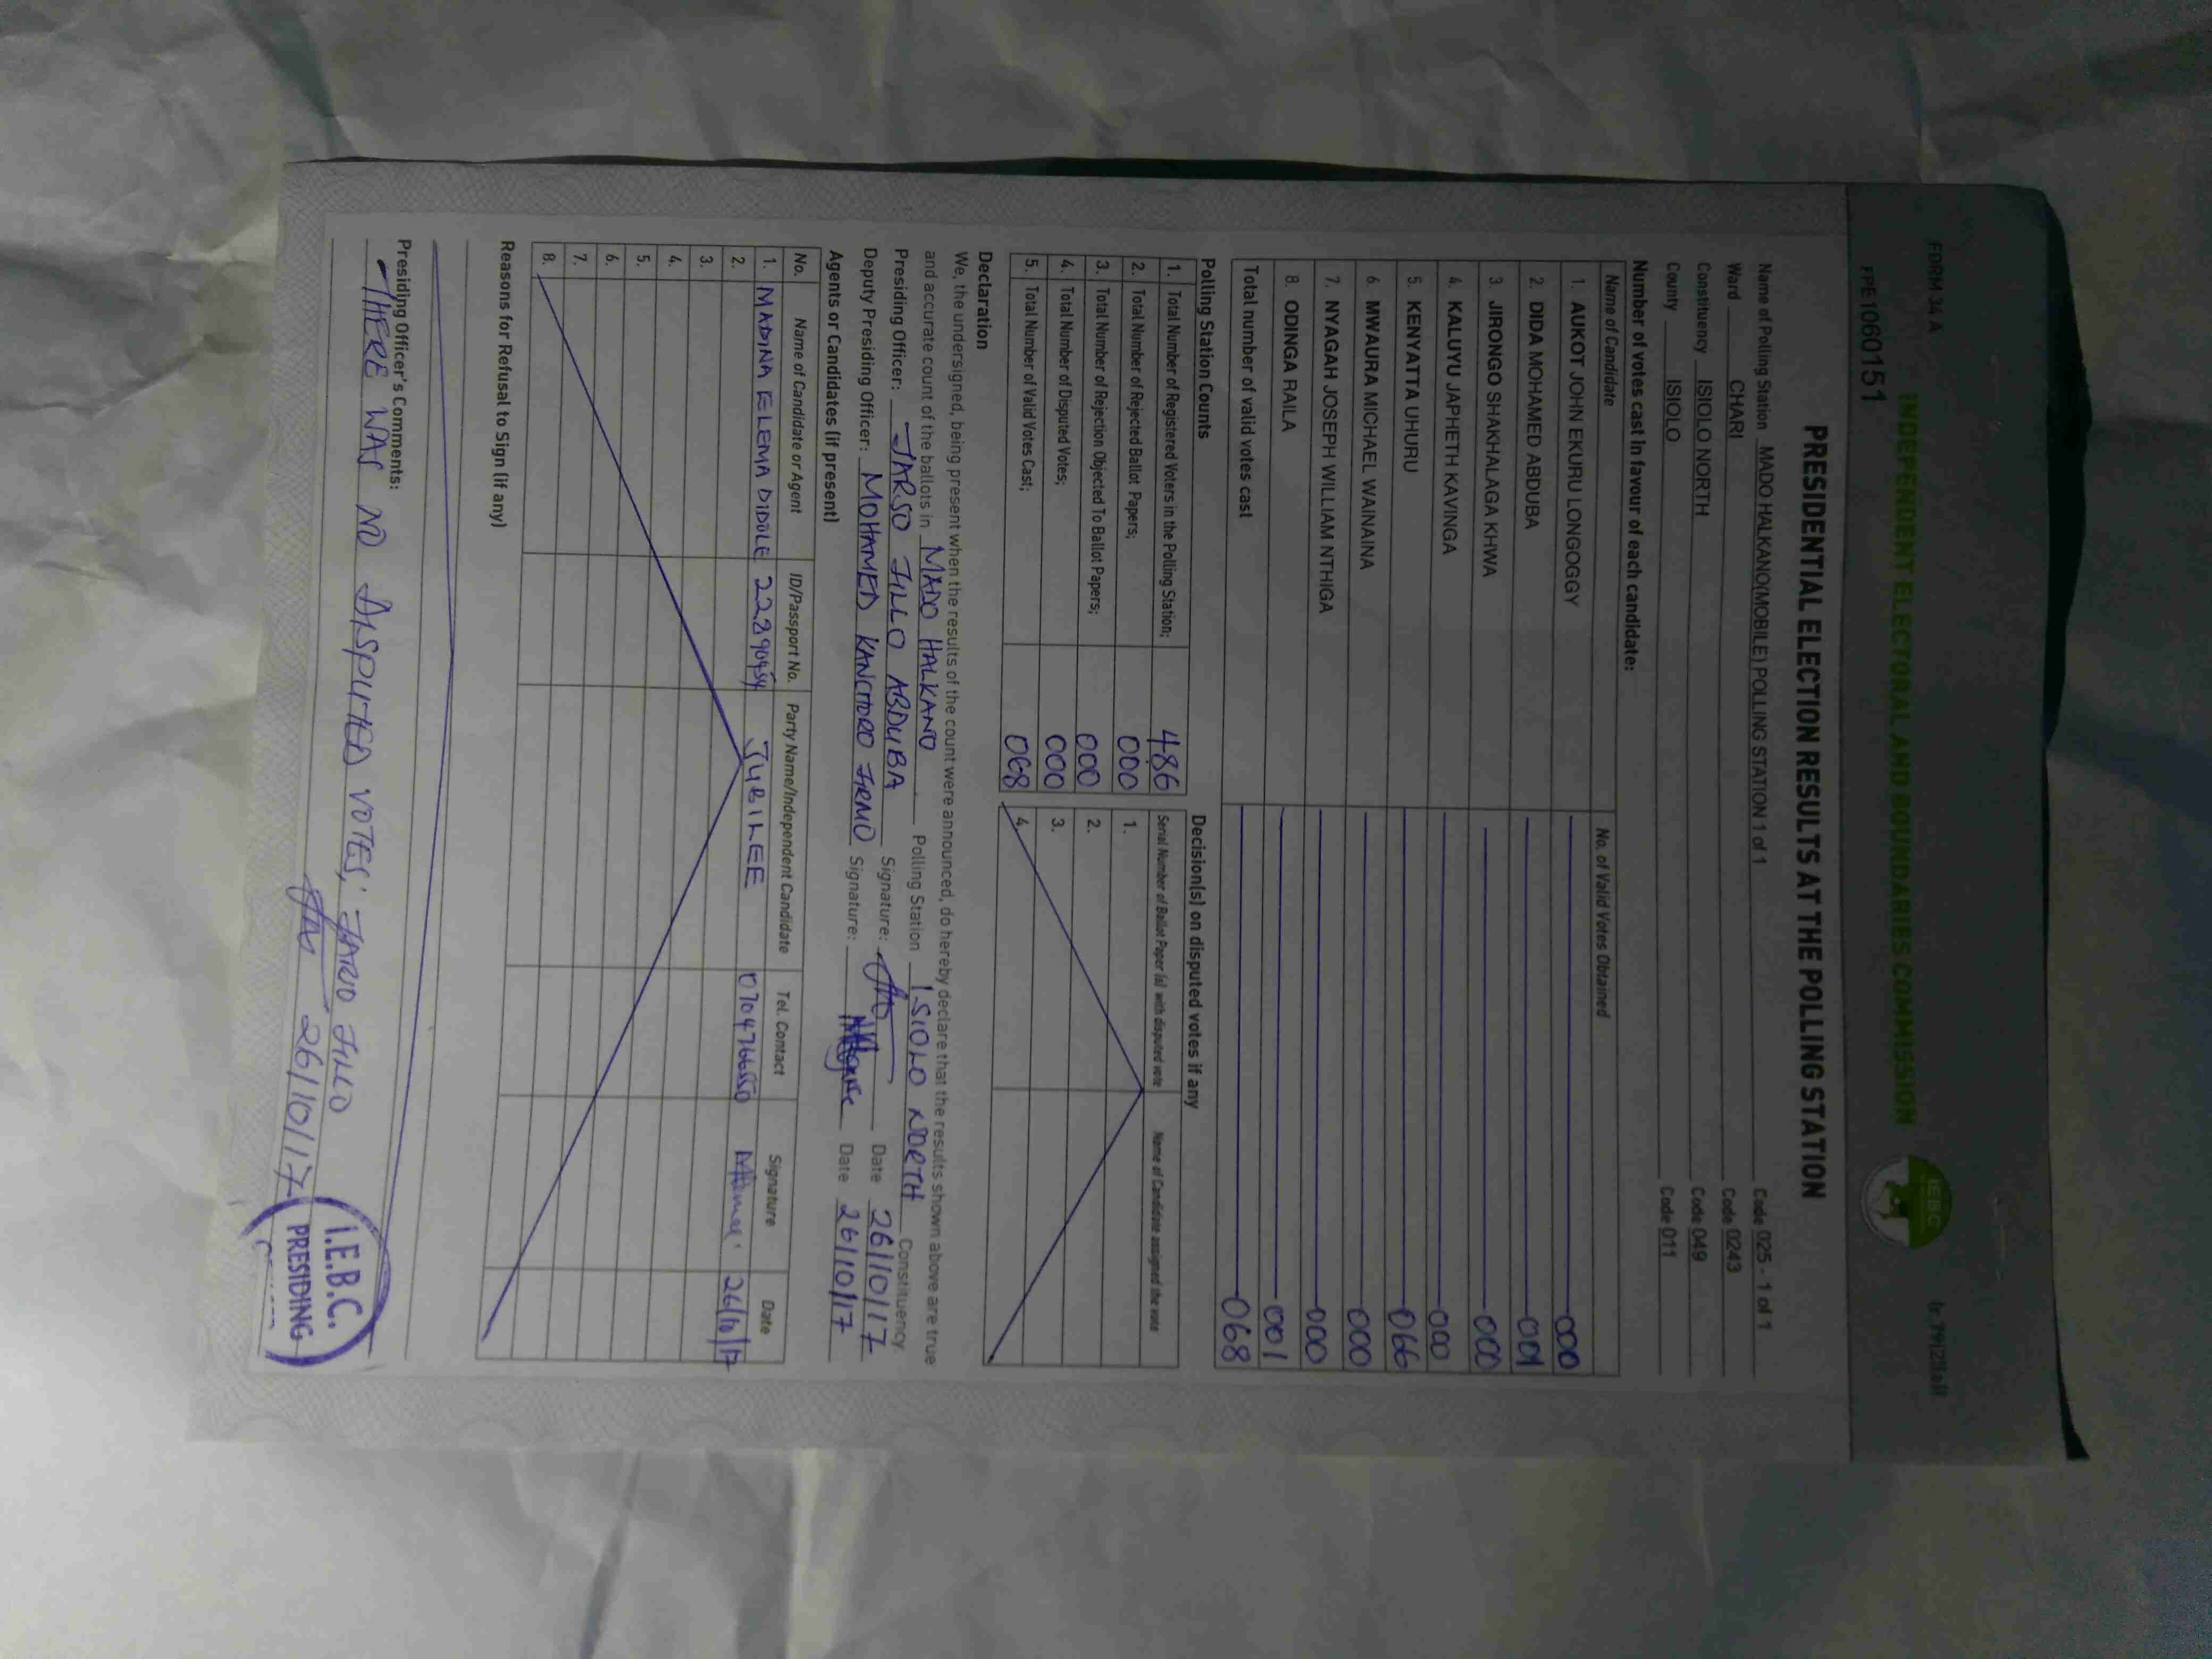 FORM 34 A
FPE1060151
INDEPENDENT ELECTORAL AND BOUNDARIES COMMISSION
IEBC
PRESIDENTIAL ELECTION RESULTS AT THE POLLING STATION
Name of Polling Station MADO HALKANO(MOBILE) POLLING STATION 1 of 1 Code 025 - 1 of 1
Ward CHARI Code 0243
Constituency ISIOLO NORTH Code 049
County ISIOLO Code 011
Number of votes cast in favour of each candidate:
Name of Candidate No. of Valid Votes Obtained
1. AUKOT JOHN EKURU LONGOGGY 000
2. DIDA MOHAMED ABDUBA 001
3. JIRONGO SHAKHALAGA KHWA 000
4. KALUYU JAPHETH KAVINGA 000
5. KENYATTA UHURU 066
6 MWAURA MICHAEL WAINAINA 000
7. NYAGAH JOSEPH WILLIAM NTHIGA 000
8. ODINGA RAILA 001
Total number of valid votes cast 068
Polling Station Counts
1. Total Number of Registered Voters in the Polling Station; 486
2. Total Number of Rejected Ballot Papers; 000
3. Total Number of Rejection Objected To Ballot Papers; 000
4. Total Number of Disputed Votes; 000
5. Total Number of Valid Votes Cast; 068
Decision(s) on disputed votes if any
Serial Number of Ballot Paper (s) with disputed vote Name of Candidate assigned the vote
1.
2.
3.
4.
Declaration
We, the undersigned, being present when the results of the count were announced, do hereby declare that the results shown above are true
and accurate count of the ballots in MADO HALKANO Polling Station ISIOLO NORTH Constituency
Presiding Officer: JARSO JILLO ABDUBA Signature: Date 26/10/17
Deputy Presiding Officer: MOHAMED KANCHORO Signature: Date 26/10/17
Agents or Candidates (if present)
No. Name of Candidate or Agent ID/Passport No. Party Name/Independent Candidate Tel. Contact Signature Date
1. MADINA ELEMA DIDOLE JUBILEE 26/10/17
2.
3.
4.
5.
6.
7.
8.
Reasons for Refusal to Sign (if any)
Presiding Officer's Comments:
- THERE WAS NO DISPUTED VOTES; JARSO JILLO
26/10/17
I.E.B.C.
PRESIDING